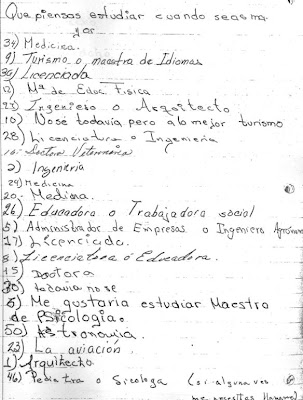 Que piensas estudiar cuando seas ma-
yor
34) Medicina.
9) Turismo o maestra de Idiomas
39) Licenciada
12) Ma de Educ. Fisica
23) Ingeniero o Arquitecto
10) No se todavia pero a lo mejor turismo
28) Licenciatura o Ingenieria
16. Doctora Veterinaria
2) Ingenieria
29) Medicina
20. Medicina.
26) Educadora o Trabajadora social
5) Administrador de Empresas o Ingeniero Agronomo
17) Licenciado.
8) Licenciatora ó Educadora.
15) Doctora
30) todavia no se
5) Me gustaria estudiar Maestro
de Psicologia.
50) Astronomia.
23) La aviación
1) Arquitecto
46) Pediatra o Sicologa (si alguna ves
me necesitas llamame)